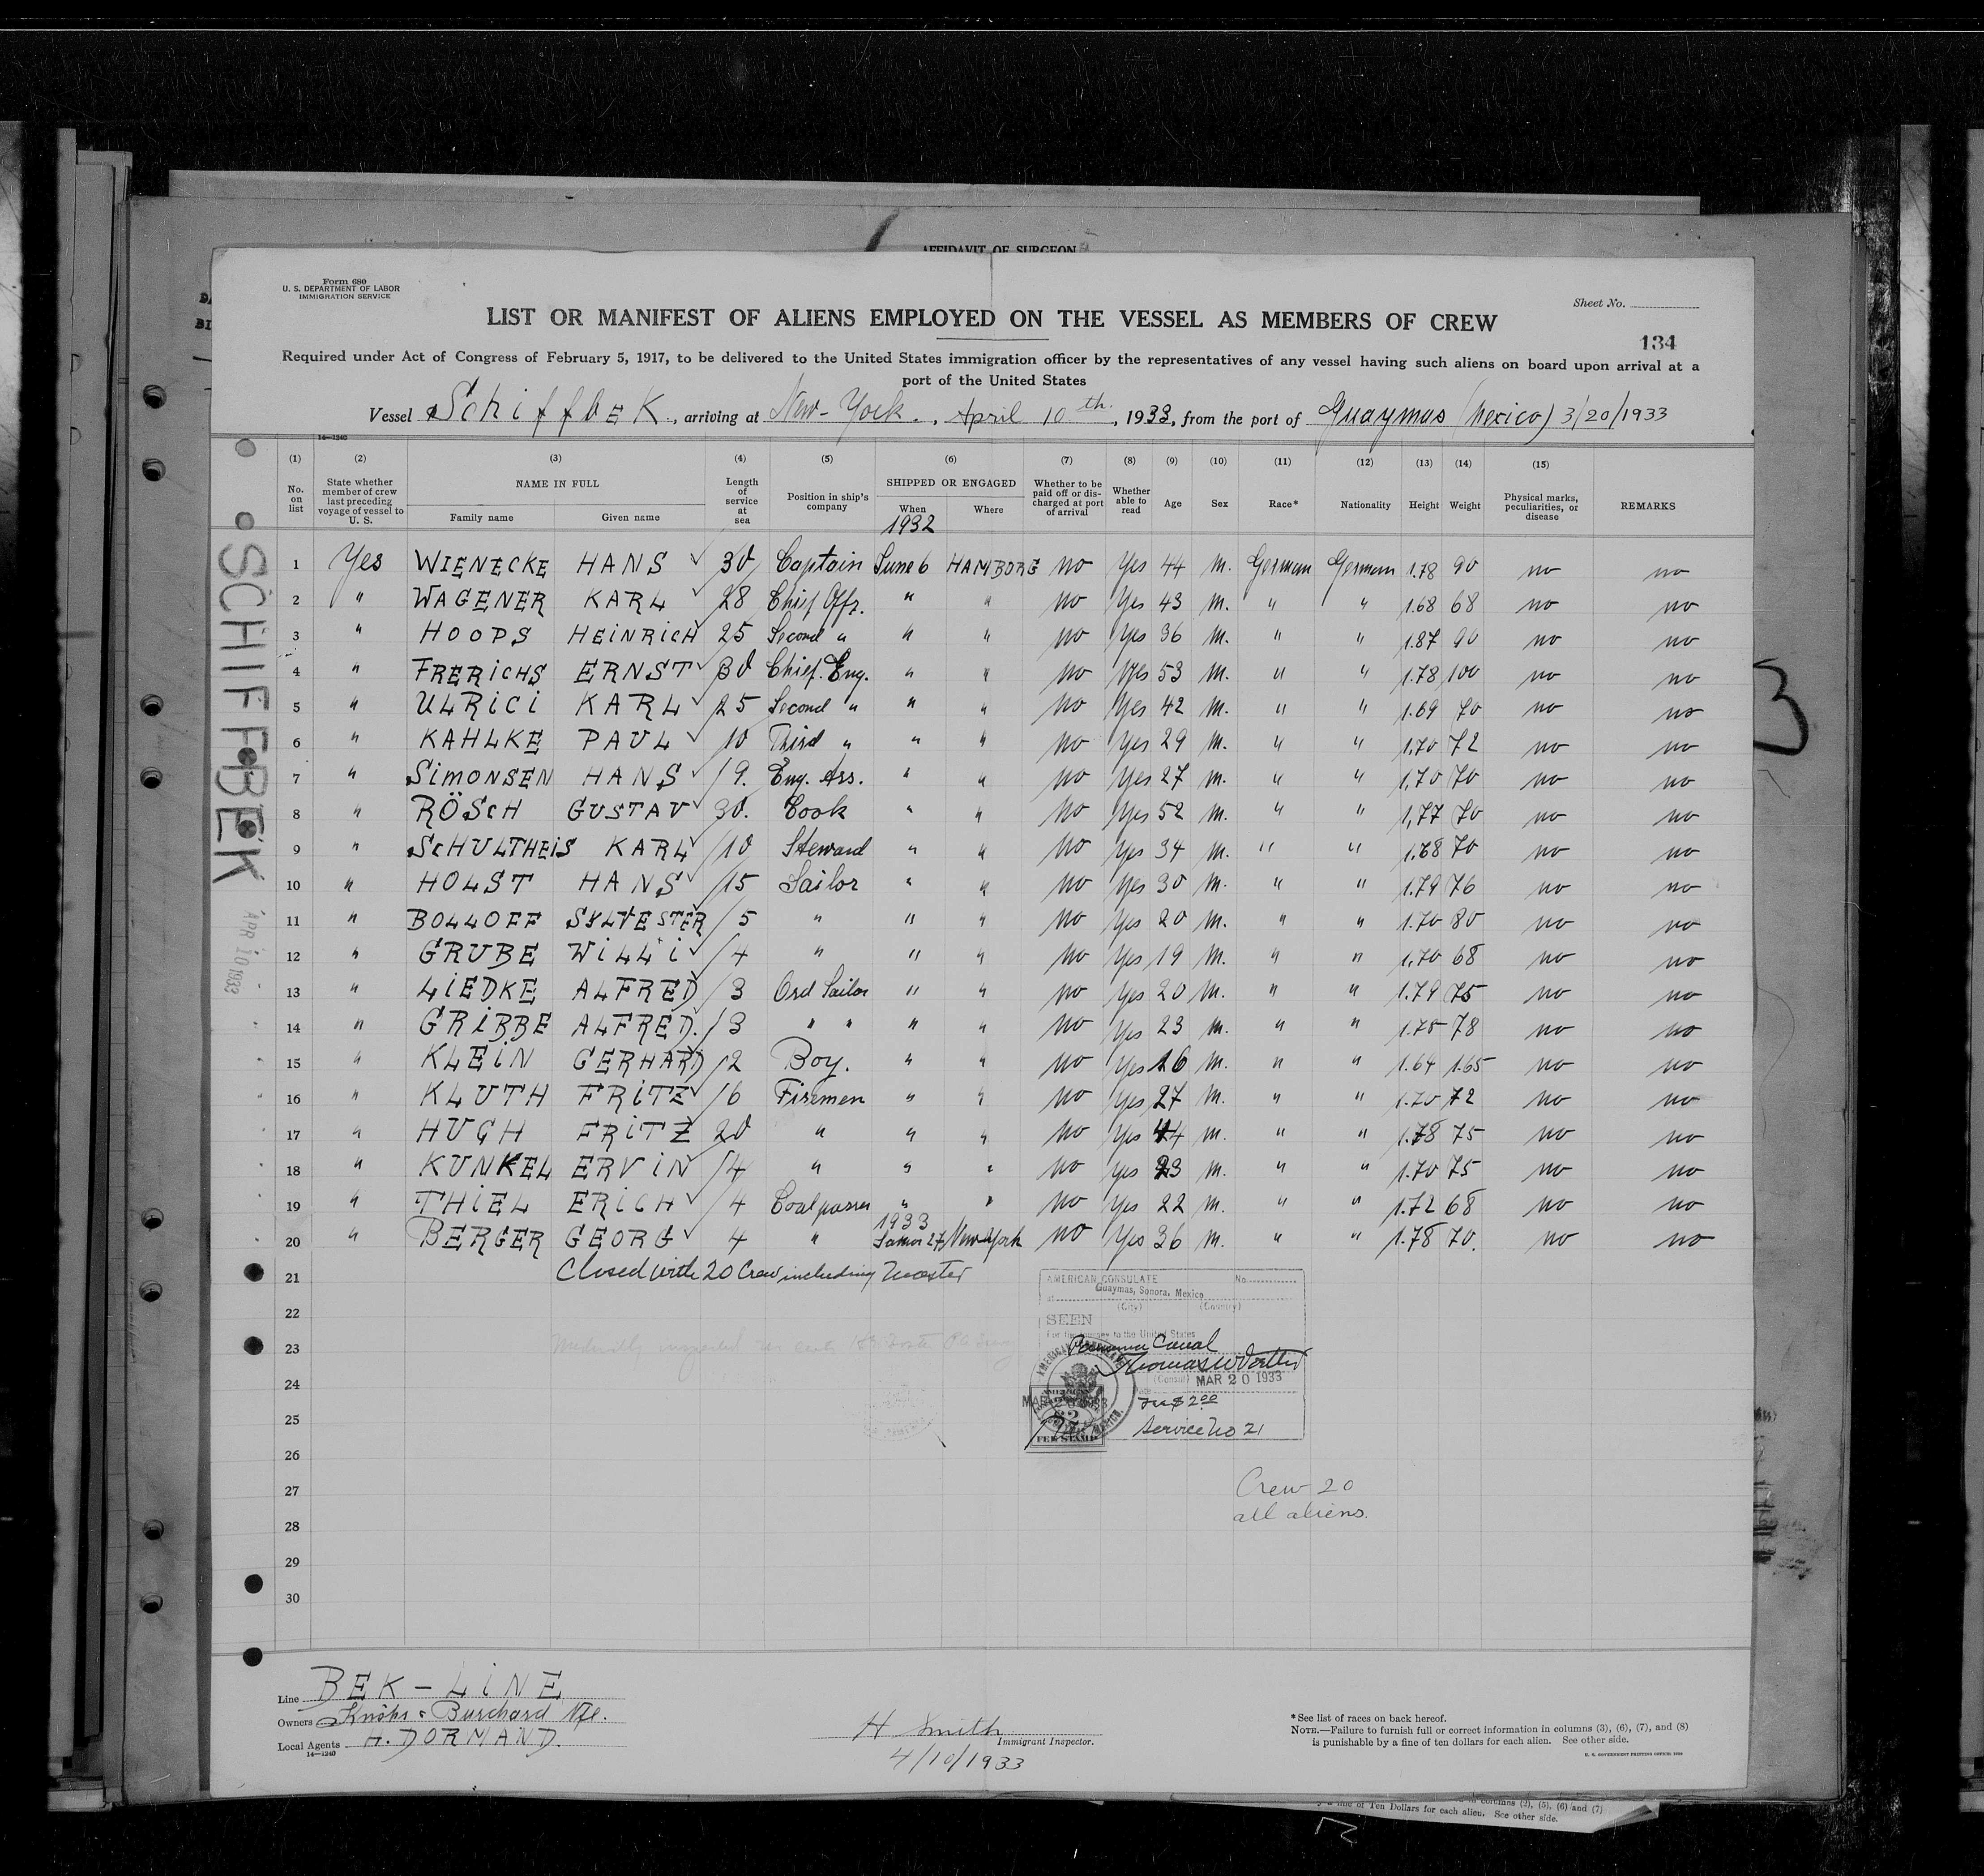 AFFIDAVIT OF SURGEON
Form 680
U. S. DEPARTMENT OF LABOR
IMMIGRATION SERVICE
Sheet No.
LIST OR MANIFEST OF ALIENS EMPLOYED ON THE VESSEL AS MEMBERS OF CREW
134
Required under Act of Congress of February 5, 1917, to be delivered to the United States immigration officer by the representatives of any vessel having such aliens on board upon arrival at a
port of the United States
Vessel Schiffbek, arriving at New-York., April 10th, 1933, from the port of Guaymas (Mexico) 3/20/1933
14—1240
(1) (2) (3) (4) (5) (6) (7) (8) (9) (10) (11) (12) (13) (14) (15)
No. on list
State whether member of crew last preceding voyage of vessel to U. S.
NAME IN FULL
Family name Given name
Length of service at sea
Position in ship's company
SHIPPED OR ENGAGED
When Where
1932
Whether to be paid off or discharged at port of arrival
Whether able to read
Age Sex Race* Nationality Height Weight
Physical marks, peculiarities, or disease
REMARKS
1 Yes WIENECKE HANS 30 Captain June 6 HAMBORG no Yes 44 m. German German 1.78 90 no no
2 " WAGENER KARL 28 Chief Offr. " " no Yes 43 m. " " 1.68 68 no no
3 " HOOPS HEINRICH 25 Second " " " no Yes 36 m. " " 1.87 90 no no
4 " FRERICHS ERNST 30 Chief. Eng. " " no Yes 53 m. " " 1.78 100 no no
5 " ULRICI KARL 25 Second " " " no Yes 42 m. " " 1.69 70 no no
6 " KAHLKE PAUL 10 Third " " " no Yes 29 m. " " 1,70 72 no no
7 " SIMONSEN HANS 9. Eng. Ass. " " no Yes 27 m. " " 1,70 70 no no
8 " RÖSCH GUSTAV 30. Cook " " no Yes 52 m. " " 1,77 70 no no
9 " SCHULTHEIS KARL 10 Steward " " no Yes 34 m. " " 1.68 70 no no
10 " HOLST HANS 15 Sailor " " no Yes 30 m. " " 1.79 76 no no
11 " BOLLOFF SYLVESTER 5 " " " no Yes 20 m. " " 1.70 80 no no
12 " GRUBE WILLI 4 " " " no Yes 19 m. " " 1.70 68 no no
13 " LIEDKE ALFRED 3 Ord Sailor " " no Yes 20 m. " " 1.79 75 no no
14 " GRIBBE ALFRED. 3 " " " " no Yes 23 m. " " 1.75 78 no no
15 " KLEIN GERHARD 2 Boy. " " no Yes 16 m. " " 1.64 1.65 no no
16 " KLUTH FRITZ 6 Firemen " " no Yes 27 m. " " 1.70 72 no no
17 " HUGH FRITZ 20 " " " no Yes 44 m. " " 1.78 75 no no
18 " KUNKEL ERVIN 4 " " " no Yes 23 m. " " 1.70 75 no no
19 " THIEL ERICH 4 Coalpasser " " no Yes 22 m. " " 1.72 68 no no
1933
20 " BERGER GEORG 4 " 27 New-York no Yes 36 m. " " 1.78 70. no no
21 Closed with 20 Crew including Master
22
23
24
25
26
27
28
29
30
AMERICAN CONSULATE No.
at Guaymas, Sonora, Mexico
(City) (Country)
SEEN
For the journey to the United States
Panama Canal
(Consul) MAR 20 1933
$2.00
Service No 21
FEE STAMP
Crew 20
all aliens.
SCHIFFBEK
APR 10 1933
3
Line BEK-LINE
Owners Knöhr & Burchard Nfl.
Local Agents H. DORMAND.
14—1240
H Smith
Immigrant Inspector.
4/10/1933
*See list of races on back hereof.
NOTE.—Failure to furnish full or correct information in columns (3), (6), (7), and (8)
is punishable by a fine of ten dollars for each alien. See other side.
U. S. GOVERNMENT PRINTING OFFICE
in columns (2), (5), (6) and (7)
fine of Ten Dollars for each alien. See other side.